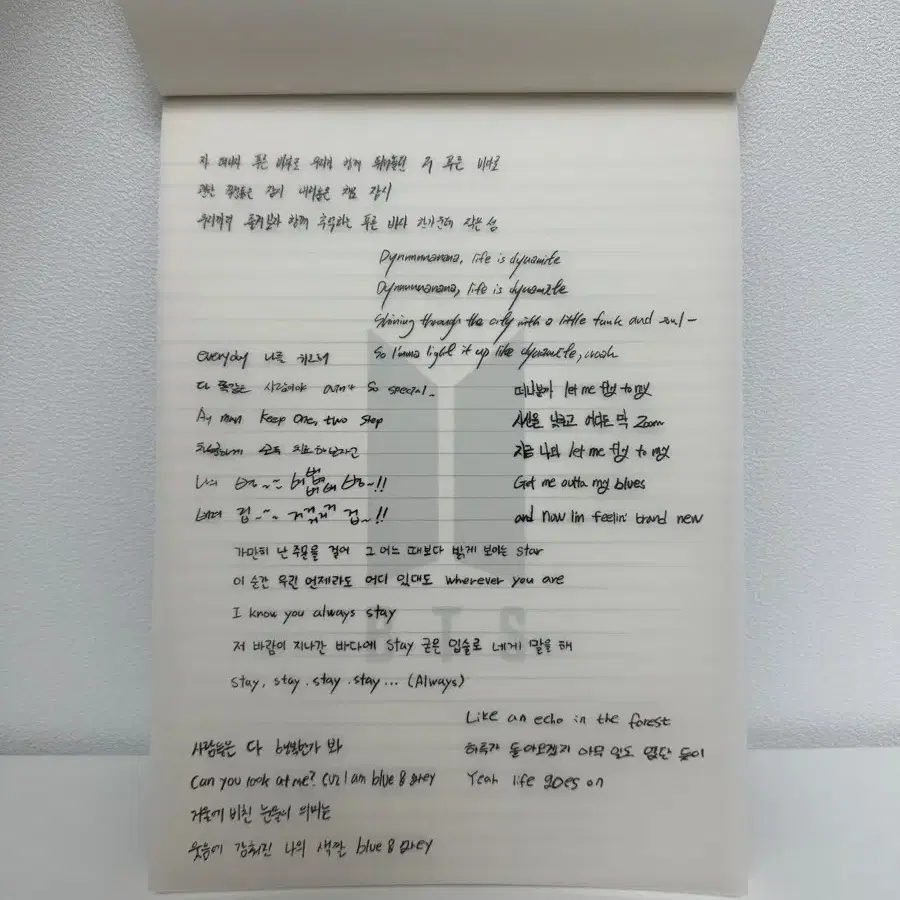 자 떠나자 푸른 바다로 우리가 함께 뛰어놀던 저 푸른 바다로
괜한 걱정들은 잠시 내려놓은 채로 잠시
우리끼리 즐겨보자 함께 추억하는 푸른 바다 한가운데 작은 섬
Dynnnnnanana, life is dynamite
Dynnnnnanana, life is dynamite
Shining through the city with a little funk and soul-
So I'mma light it up like dynamite, woah
everyday 나를
다 똑같은 사람이야 ain't so special..
Ay man Keep one, two step
차분하게 모두 치료해보자고
나의 병~~ 벼벼벼벼벼 병~!!
버려 겁~~~ 거거거거거 겁~!!
떠나볼까 let me fly to my
시선을 낮추고 어디든 막 Zoom
지금 나와 let me fly to my
Get me outta my blues
and now I'm feelin' brand new
가만히 난 주문을 걸어 그 어느 때보다 밝게 보이는 star
이 순간 우린 언제라도 어디 있대도 wherever you are
I know you always stay
저 바람이 지나간 바다에 stay 굳은 입술로 네게 말을 해
stay, stay. stay. stay... (Always)
Like an echo in the forest
하루가 돌아오겠지 아무 일도 없단 듯이
Yeah life goes on
사람들은 다 행복한가 봐
Can you look at me? cuz I am blue & grey
거울에 비친 눈물의 의미는
웃음에 감춰진 나의 색깔 blue & grey
BTS